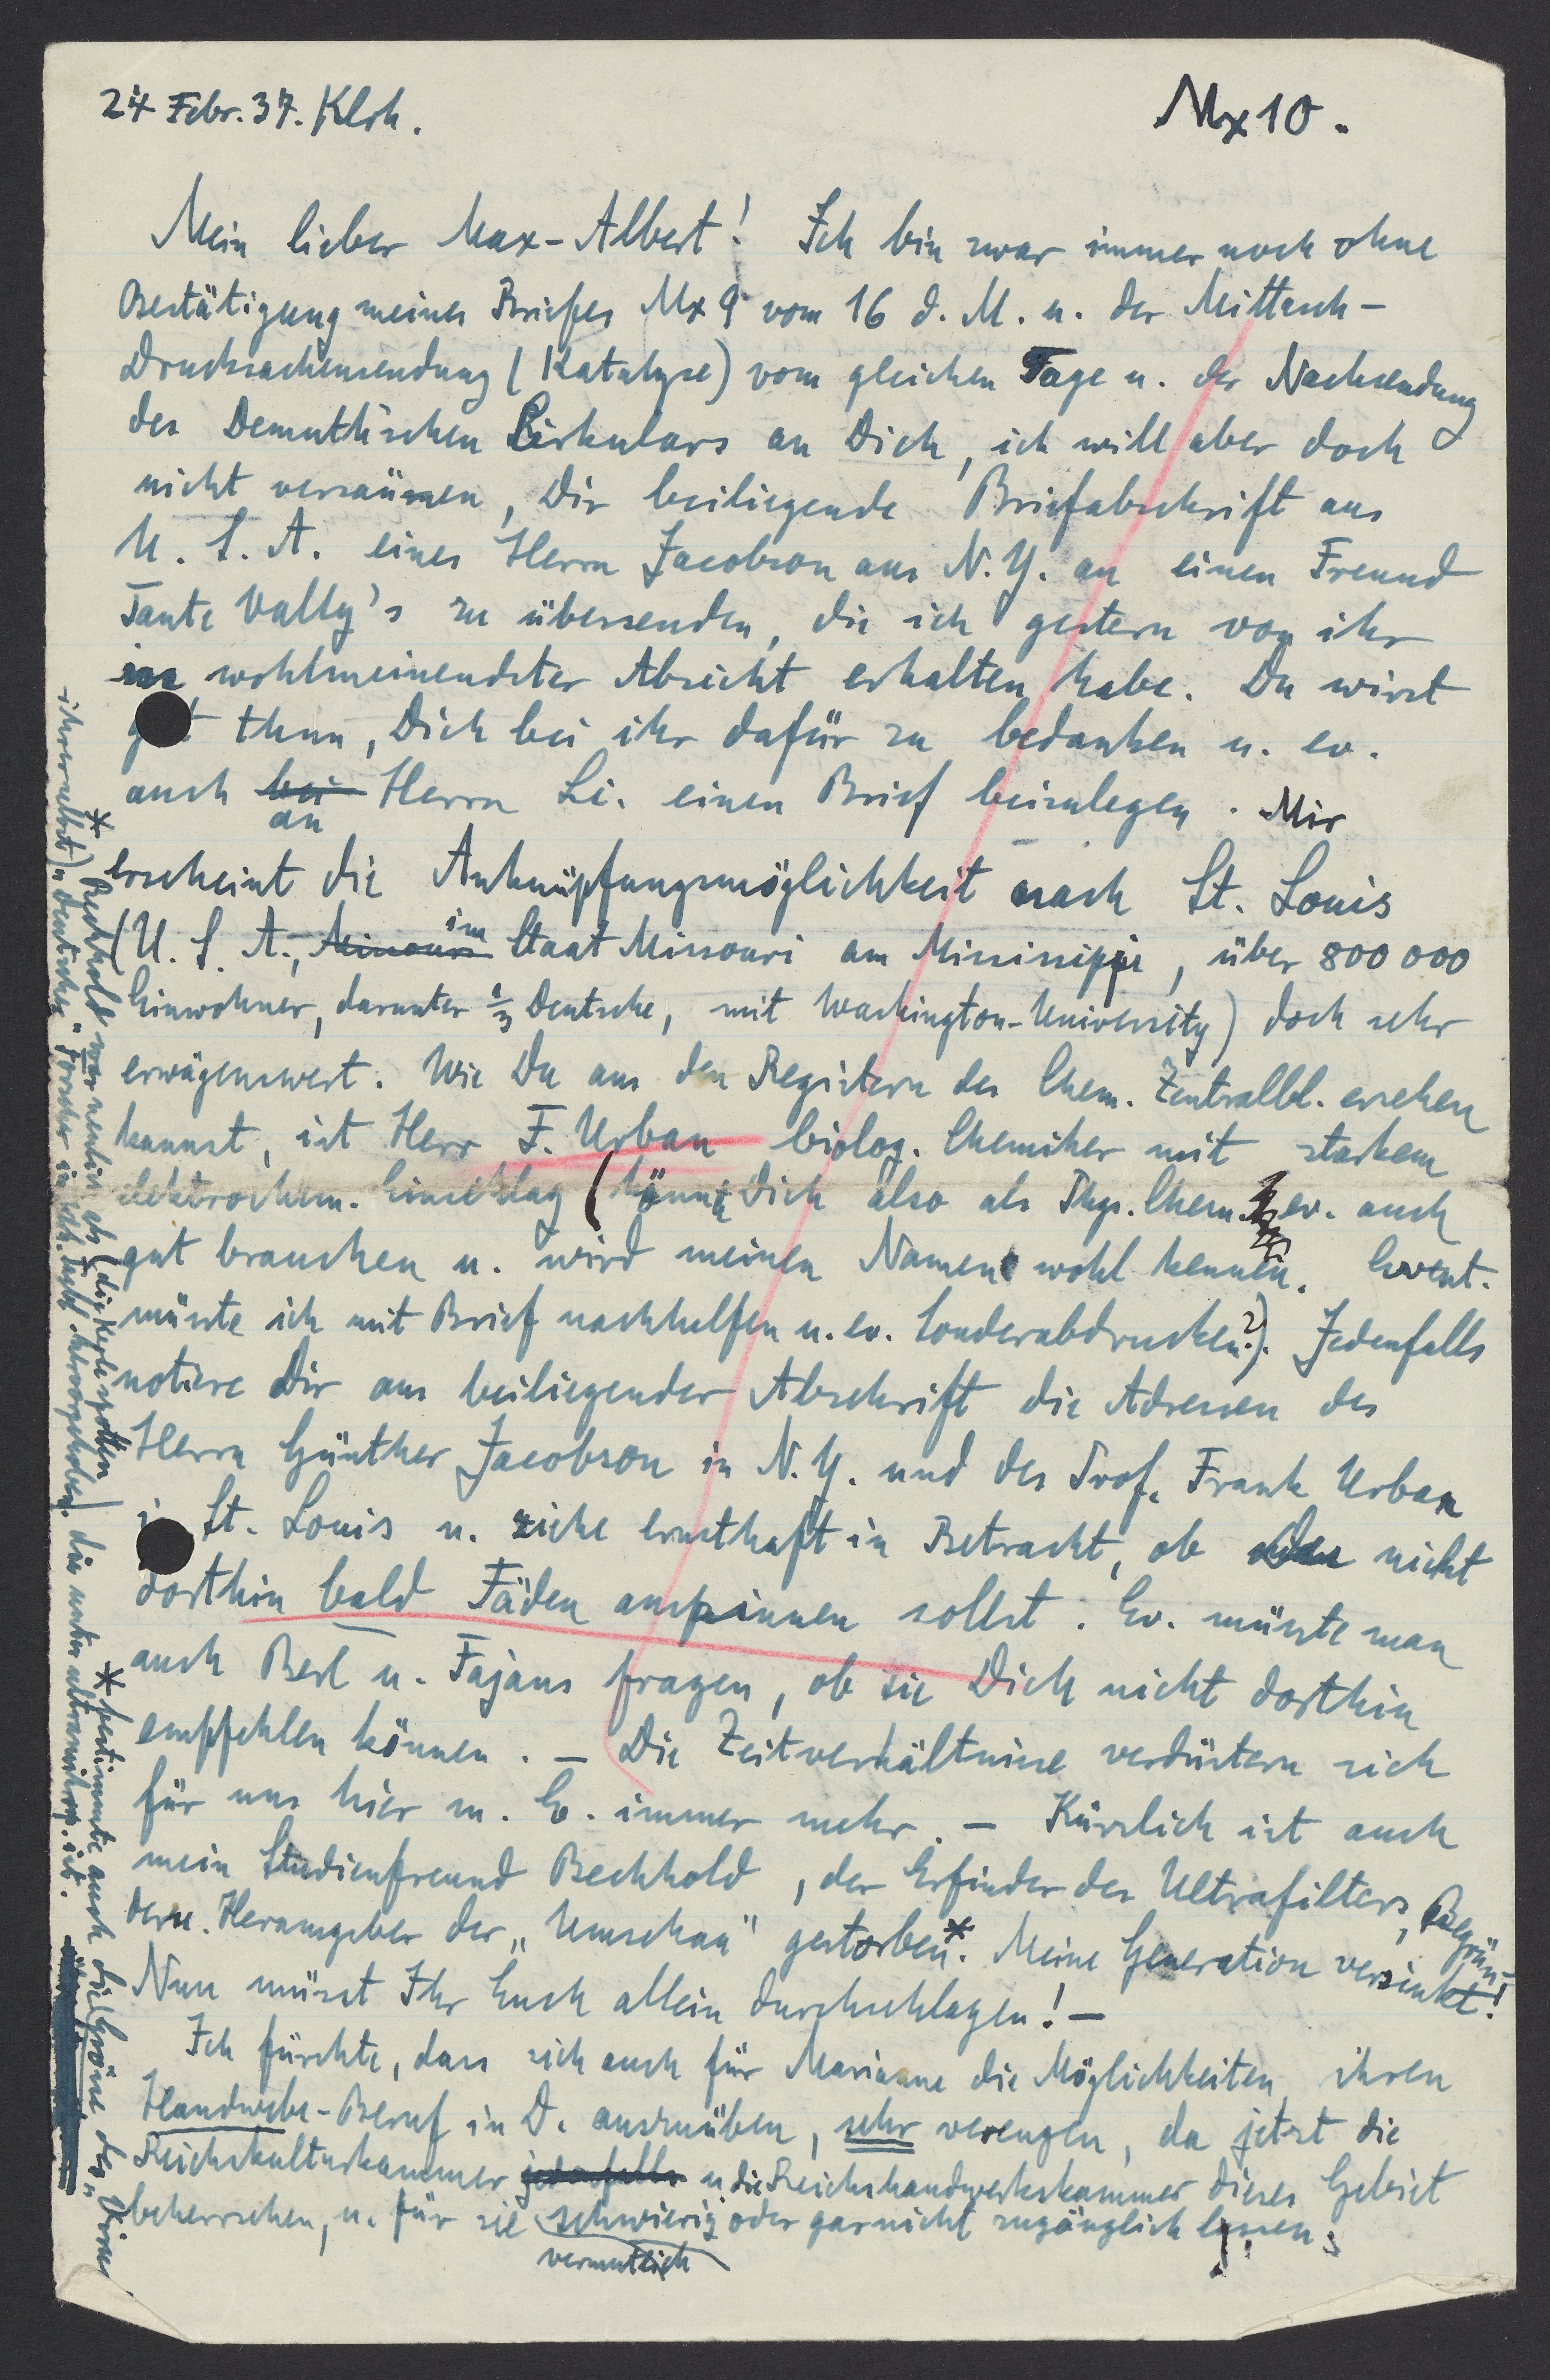 24 Febr. 37. Klrh.
Mx 10.
Mein lieber Max-Albert! Ich bin zwar immer noch ohne
Bestätigung meines Briefes Mx 9 vom 16 d. M. u. der Mittasch-
Drucksachensendung (Katalyse) vom gleichen Tage u. der Nachsendung
des Demuth'schen Cirkulars an Dich, ich will aber doch
nicht versäumen, Dir beiliegende Briefabschrift aus
U. S. A. eines Herrn Jacobson aus N. Y. an einen Freund
Tante Vally's zu übersenden, die ich gestern von ihr
in wohlmeinendster Absicht erhalten habe. Du wirst
gut thun, Dich bei ihr dafür zu bedanken u. ev.
auch bei an Herrn Li. einen Brief beizulegen. Mir
erscheint die Anknüpfungsmöglichkeit nach St. Louis
(U. S. A., Missouri im Staat Missouri am Mississippi, über 800 000
Einwohner, darunter 1/3 Deutsche, mit Washington-University) doch sehr
erwägenswert. Wie Du aus den Registern des Chem. Zentralbl. ersehen
kannst, ist Herr F. Urban biolog. Chemiker mit starkem
elektrochem. Einschlag (könnte Dich also als Phys. Chem. ev. auch
gut brauchen u. wird meinen Namen wohl kennen. Event.
müsste ich mit Brief nachhelfen u. ev. Sonderabdrucken?). Jedenfalls
notiere Dir aus beiliegender Abschrift die Adressen des
Herrn Günther Jacobson in N. Y. und des Prof. Frank Urban
in St. Louis u. ziehe ernsthaft in Betracht, ob Du nicht
dorthin bald Fäden anspinnen sollst. Ev. müsste man
auch Berl u. Fajans fragen, ob sie Dich nicht dorthin
empfehlen können. – Die Zeitverhältnisse verdüstern sich
für uns hier m. E. immer mehr. – Kürzlich ist auch
mein Studienfreund Bechhold, der Erfinder des Ultrafilters, Begrün-
der u. Herausgeber der „Umschau" gestorben*. Meine Generation versinkt!
Nun müsst Ihr Euch allein durchschlagen! –
Ich fürchte, dass sich auch für Marianne die Möglichkeiten, ihren
Handwebe-Beruf in D. auszuüben, sehr verengen, da jetzt die
Reichskulturkammer jedenfalls u. die Reichshandwerkskammer dieses Gebiet
beherrschen, u. für sie schwierig oder garnicht zugänglich lassen.
vermutlich
* Bechhold war neulich als (die Kerle spotten
ihrer selbst) „deutscher" Forscher in
* bestimmte auch die Grösse des „Virus